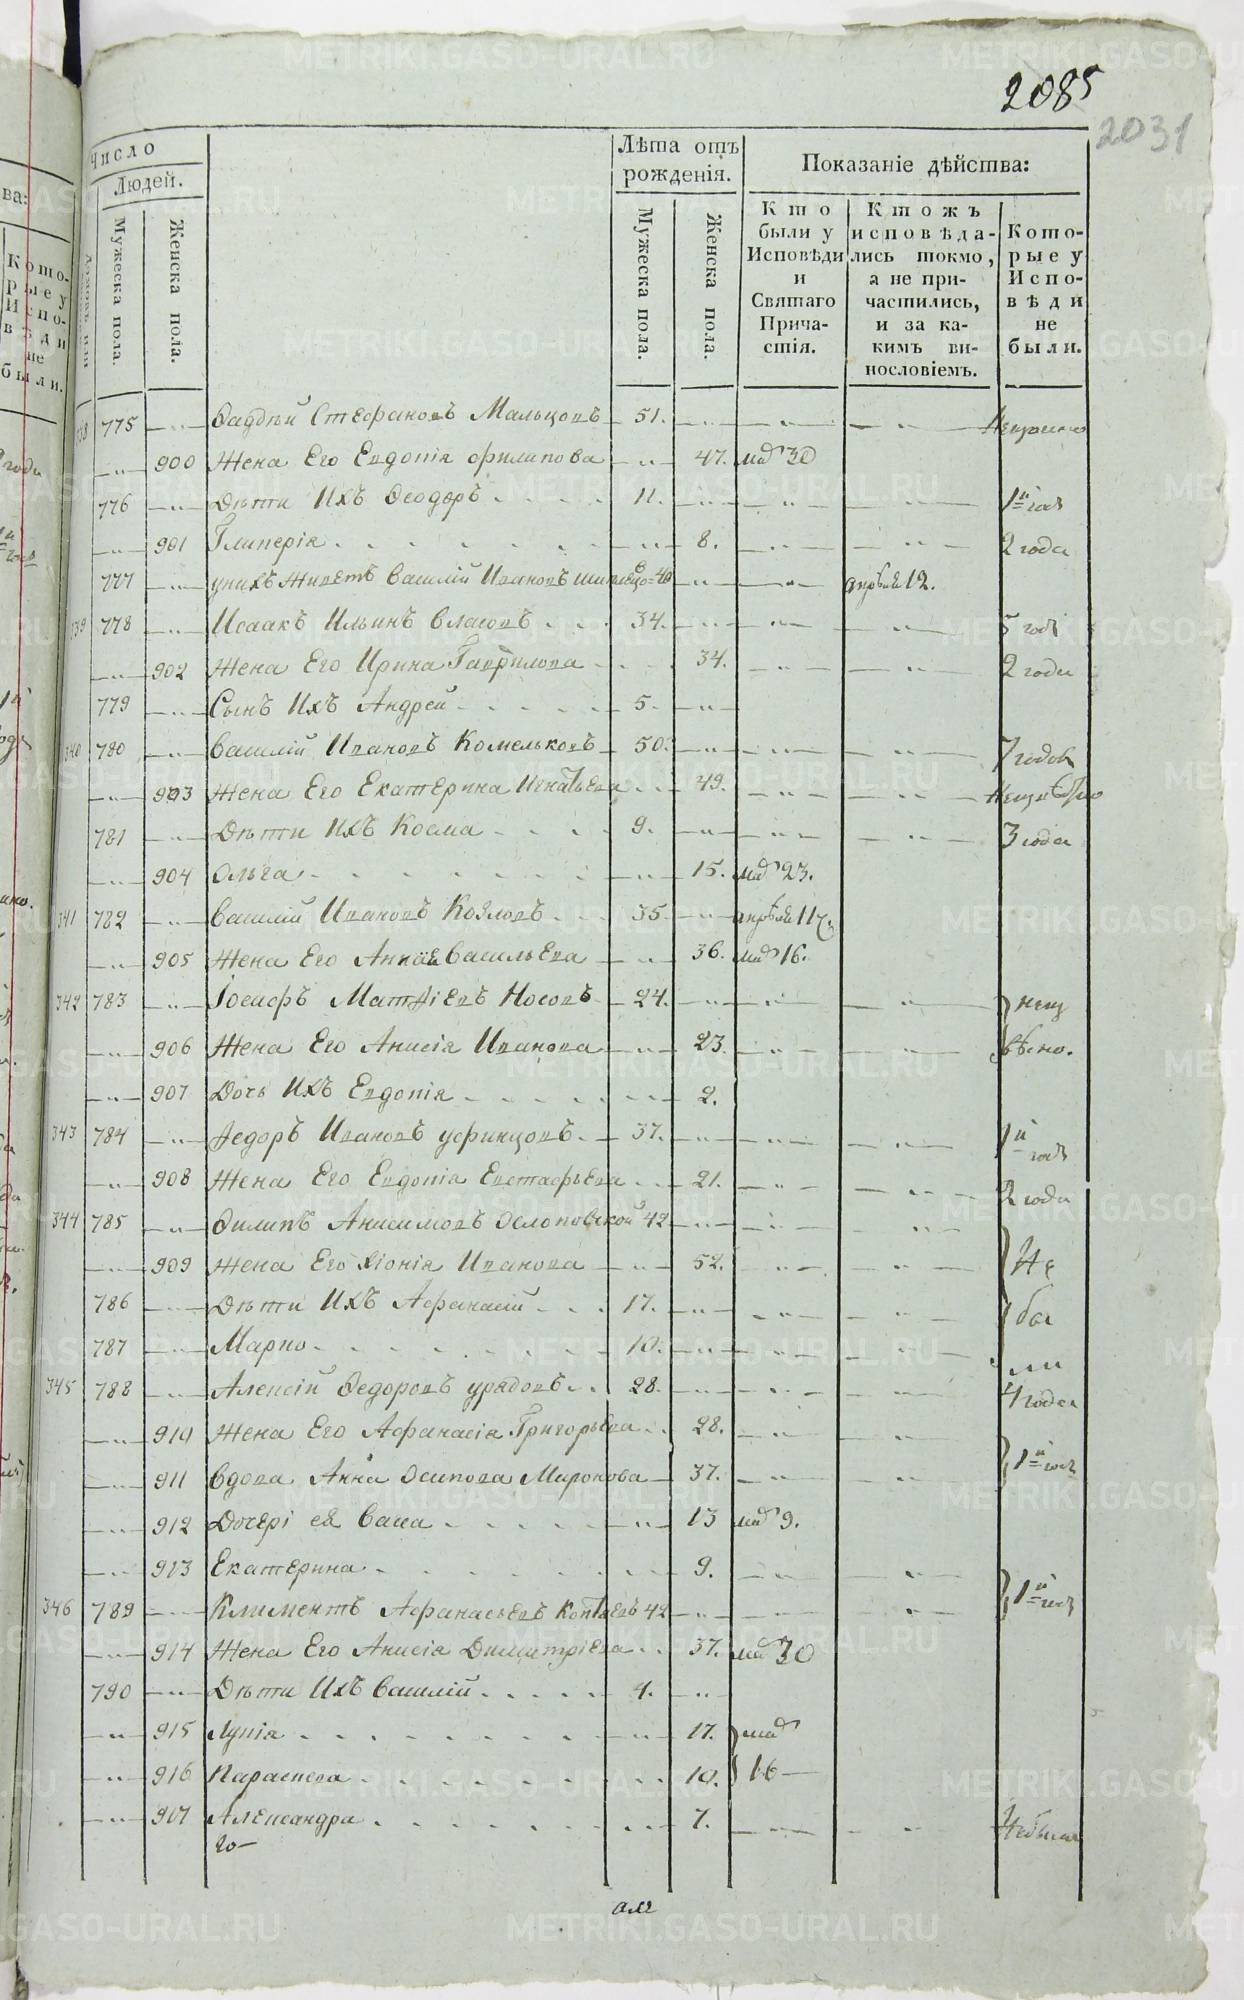 2085
2031
Число
Людей.
Мужеска пола.
Женска пола.
Лѣта отъ рожденія.
Мужеска пола.
Женска пола.
Показаніе дѣйства:
Кто были у Исповѣди и Святаго Прича- стія.
Ктожъ исповѣда- лись токмо, а не при- частились, и за ка- кимъ ви- нословіемъ.
Кото- рые у Испо- вѣди не были.
338 775 Фаддѣй Стефановъ Мальцовъ 51.
900 Жена Его Евдопія Филипова 47. маія 30
776 Дѣти Ихъ Феодоръ 11. 1й годъ
901 Гликерія 8. 2 года
777 уних Живетъ Василій Ивановъ 40 апрѣля 12.
339 778 Исаакъ Ильинъ Власовъ 34. 5 годъ
902 Жена Его Ирина Гаврилова 34. 2 года
779 Сынъ Ихъ Андрей 5.
340 780 Василій Ивановъ Комельковъ 50. 7 годовъ
903 Жена Его Екатерина Игнатьева 49.
781 Дѣти Ихъ Косма 9. 3 года
904 Ольга 15. маія 23.
341 782 Василій Ивановъ Козловъ 35 апрѣля 17
905 Жена Его Анна Васильева 36. маія 16.
342 783 Іосифъ Матфіевъ Носовъ 24. неиз
906 Жена Его Анисія Иванова 23. вѣсно.
907 Дочь Ихъ Евдопія 2.
343 784 Федоръ Ивановъ уфинцовъ 37. 1й годъ
908 Жена Его Евдопія Евстафьева 21. 2 года
344 785 Филипъ Анисимовъ Ослоповской 42
909 Жена Его Хіонія Иванова 52. Не
786 Дѣти Ихъ Афанасій 17. бы
787 Марко 10. ли
345 788 Алексій Федоровъ урядовъ 28. 4 года
910 Жена Его Афанасія Григорьева 28.
911 Вдова Анна Осипова Миронова 37. 1й годъ
912 Дочери ея Васса 13 маія 9.
913 Екатерина 9.
346 789 Климентъ Афанасьевъ Коптяевъ 42 1й годъ
914 Жена Его Анисія Димитріева 37. маія 30
790 Дѣти Ихъ Василій 4.
915 Лукія 17. маія
916 Параскева 10. 16
917 Александра 7. Небыла